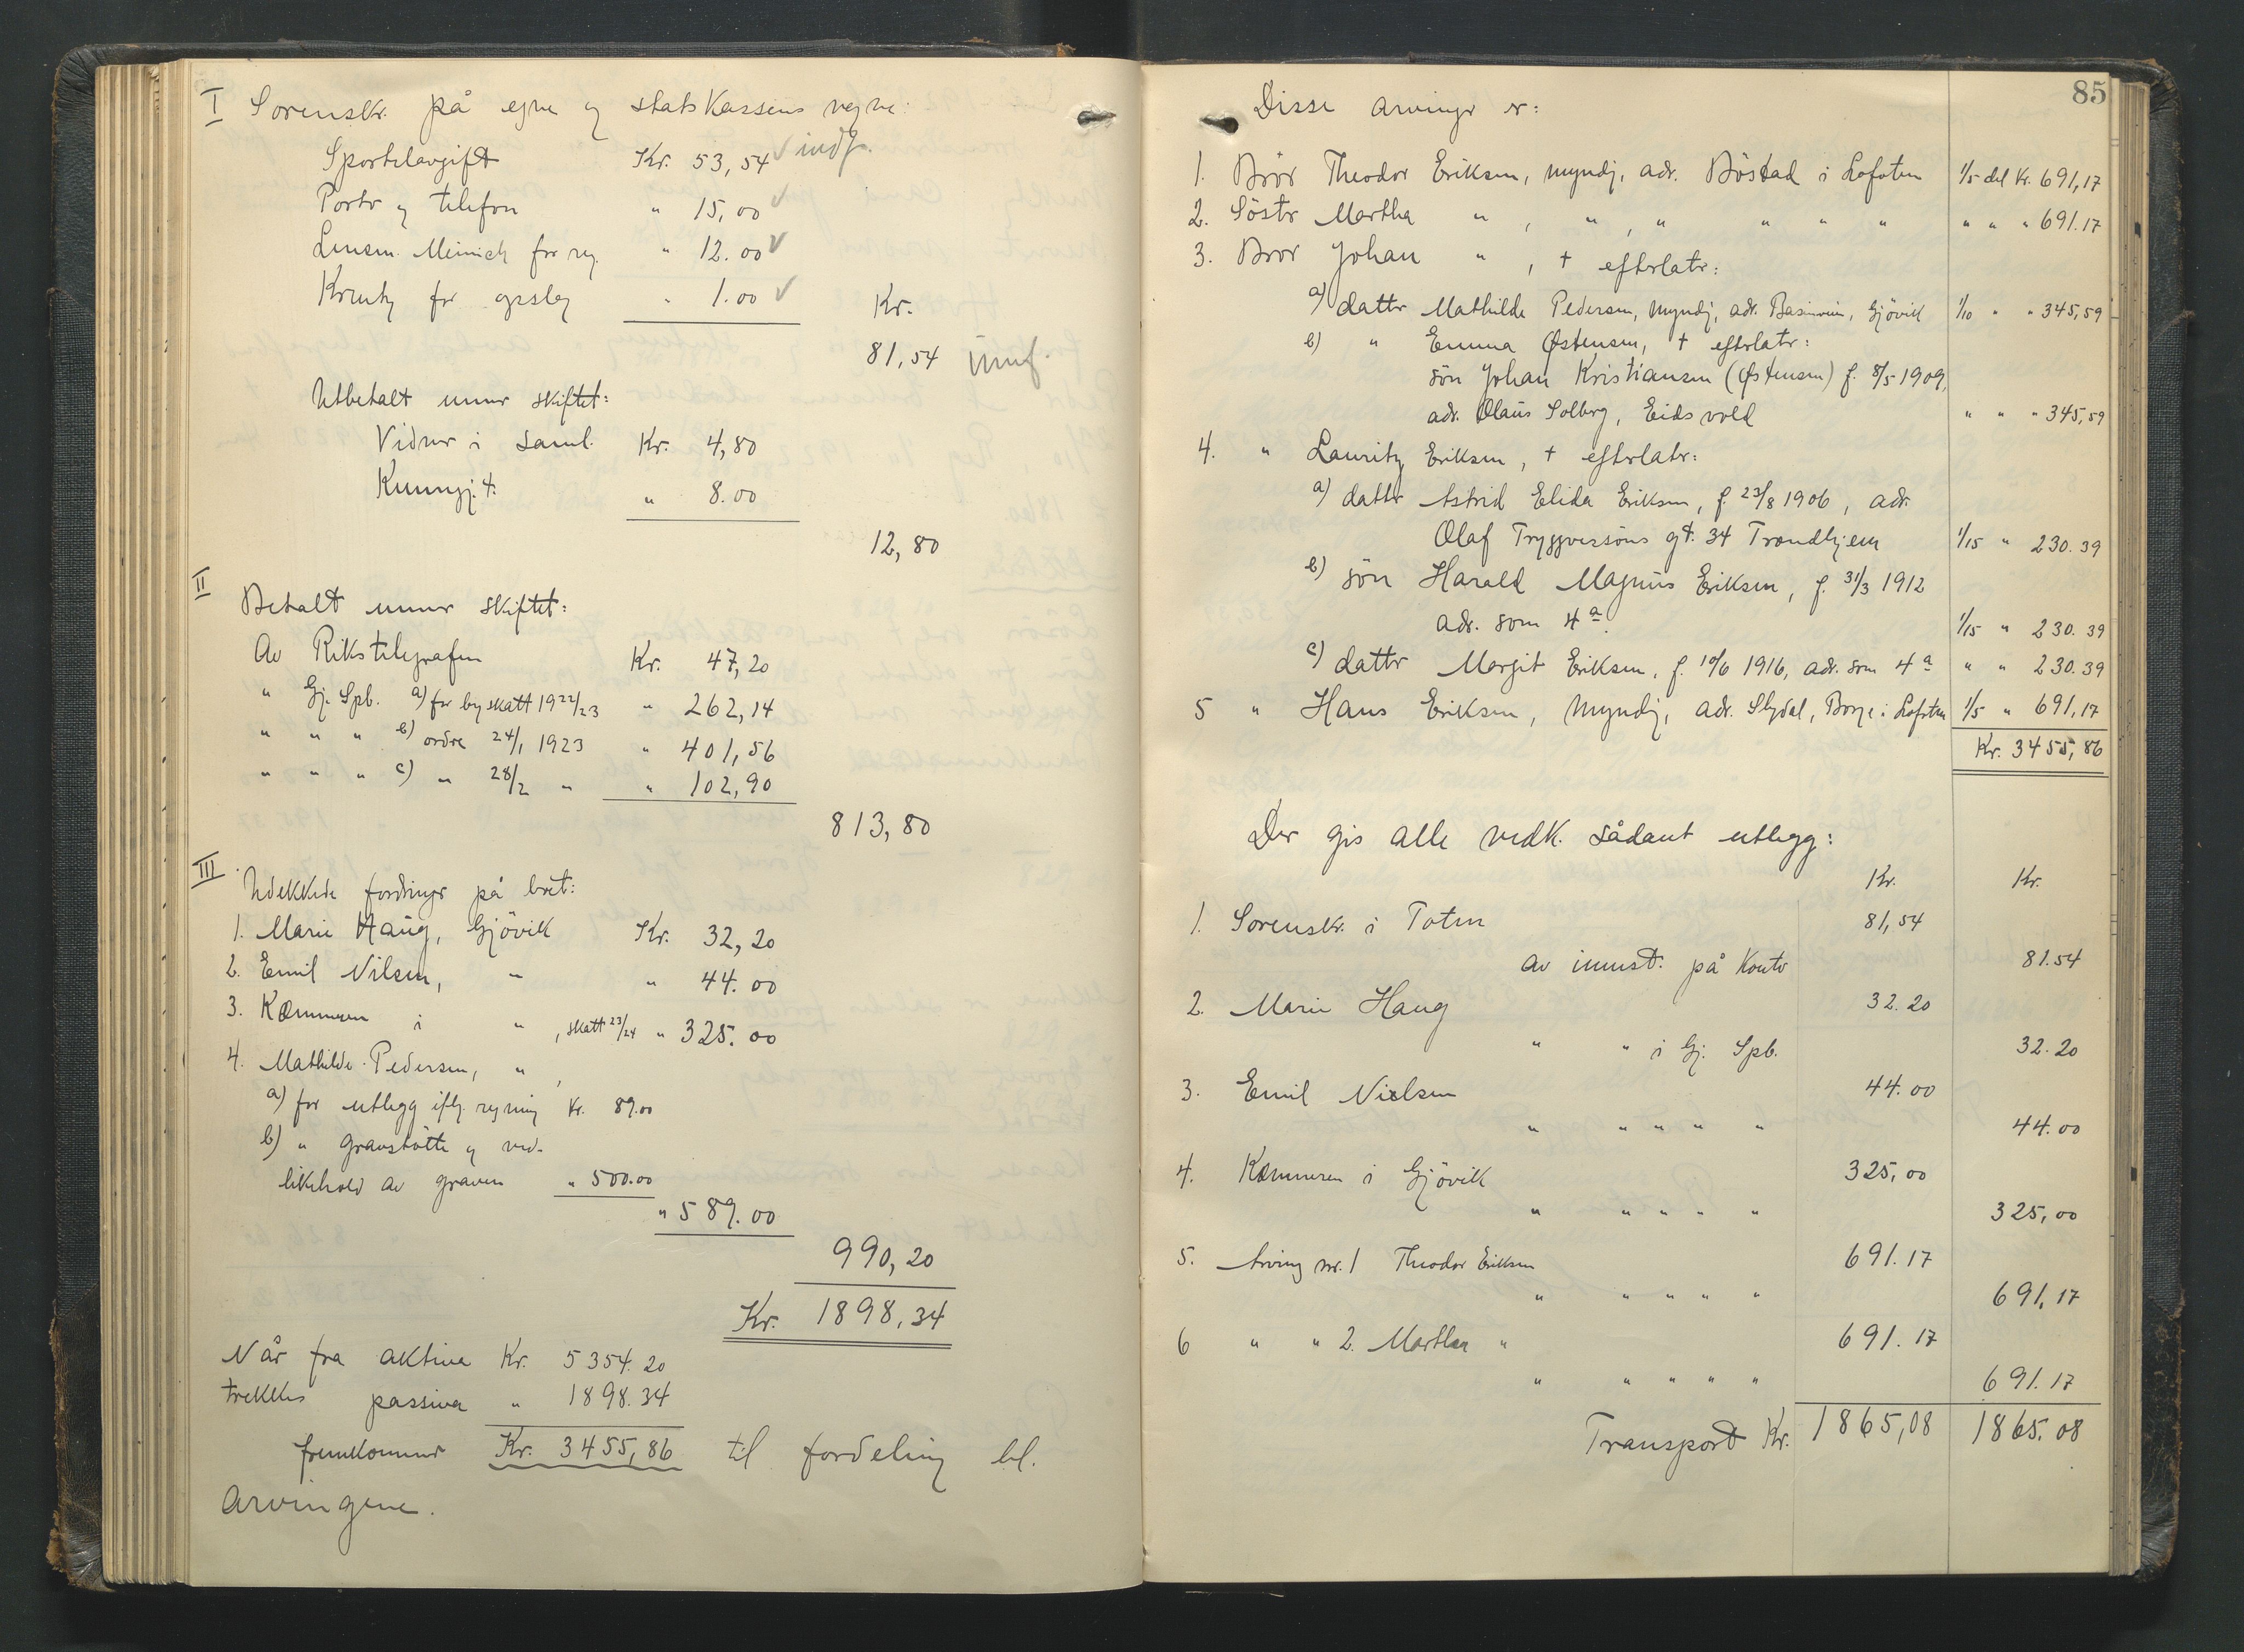 I Sorenskr. på egne og statskassens vegne:
Sportelavgift Kr. 53,54 √ indf.
Porto og telefon " 15,00 √
Lensm. Meinich for reg. " 12.00 √
for opslag " 1.00 √ Kr.
81,54
Utbetalt under skiftet:
Vidner i saml. Kr. 4,80
Kunngj. t. " 8.00
12,80
II
Betalt under skiftet:
Av Rikstelegrafen Kr. 47,20
" Gj. Spb. a) for byskatt 1922/23 " 262,14
" " " b) ordre 24/1 1923 " 401,56
" " " c) " 28/2 " " 102,90
813,80
III
Udekkede fordringer på boet:
1. Marie Haug, Gjövik Kr. 32,20
2. Emil Nilsen, " " 44.00
3. Kæmneren i " , skatt 23/24 " 325.00
4. Mathilde Pedersen, " ,
a) for utlegg iflg. regning Kr. 89.00
b) " gravstötte og ved-
likehold av graven " 500.00
" 589.00
990,20
Kr. 1898,34
Når fra aktiva Kr. 5354.20
trekkes passiva " 1898.34
fremkommer Kr. 3455,86 til fordeling bl.
arvingene.
85
Disse arvinger er:
1. Bror Theodor Eriksen, myndig, adr. Böstad i Lofoten 1/5 del Kr. 691,17
2. Söster Martha " , " , " " " " " " " 691.17
3. Bror Johan " , † efterlater:
a) datter Mathilde Pedersen, myndig, adr. Gjövik 1/10 " " 345,59
b) " Emma Østensen, † efterlater:
sön Johan Kristiansen (Østensen) f. 8/5 1909,
adr. Olaus Solberg, Eidsvold " " " 345,59
4. " Lauritz Eriksen, † efterlater:
a) datter Astrid Elida Eriksen, f. 23/8 1906, adr.
Olaf Tryggvessöns gt. 34 Trondhjem 1/15 " 230.39
b) sön Harald Magnus Eriksen, f. 31/3 1912
adr. som 4a. 1/15 " 230.39
c) datter Margit Eriksen, f. 10/6 1916, adr. som 4a " " 230.39
5 " Hans Eriksen, myndig, adr. Slydal, Borge i Lofoten 1/5 " 691,17
Kr. 3455,86
Der gis alle vedk. sådant utlegg:
Kr. Kr.
1. Sorenskr. i Toten 81,54
av innest. på Konto 81.54
2. Marie Haug 32.20
" " i Gj. Spb. 32.20
3. Emil Nielsen 44.00
" " " " " 44.00
4. Kæmneren i Gjövik 325,00
" " " " " 325,00
5. Arving nr. 1 Theodor Eriksen 691.17
" " " " " 691,17
6 " " 2. Martha " 691.17
" " " " " 691.17
Transport Kr. 1865,08 1865.08